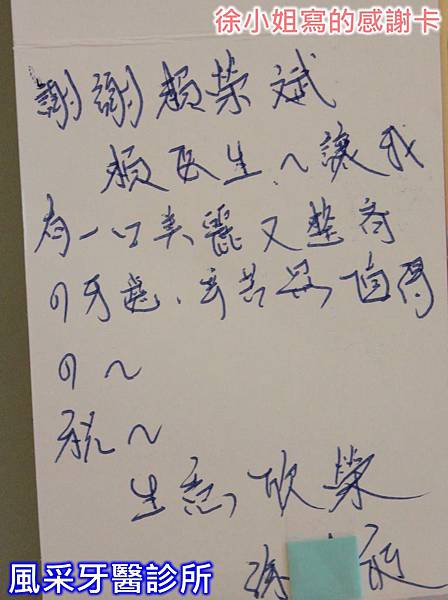 徐小姐寫的感謝卡
謝謝賴榮斌
賴医生～讓我
有一口美麗又整齊
の牙齒、辛苦是值得
の～
祝～
生意欣榮
風采牙醫診所